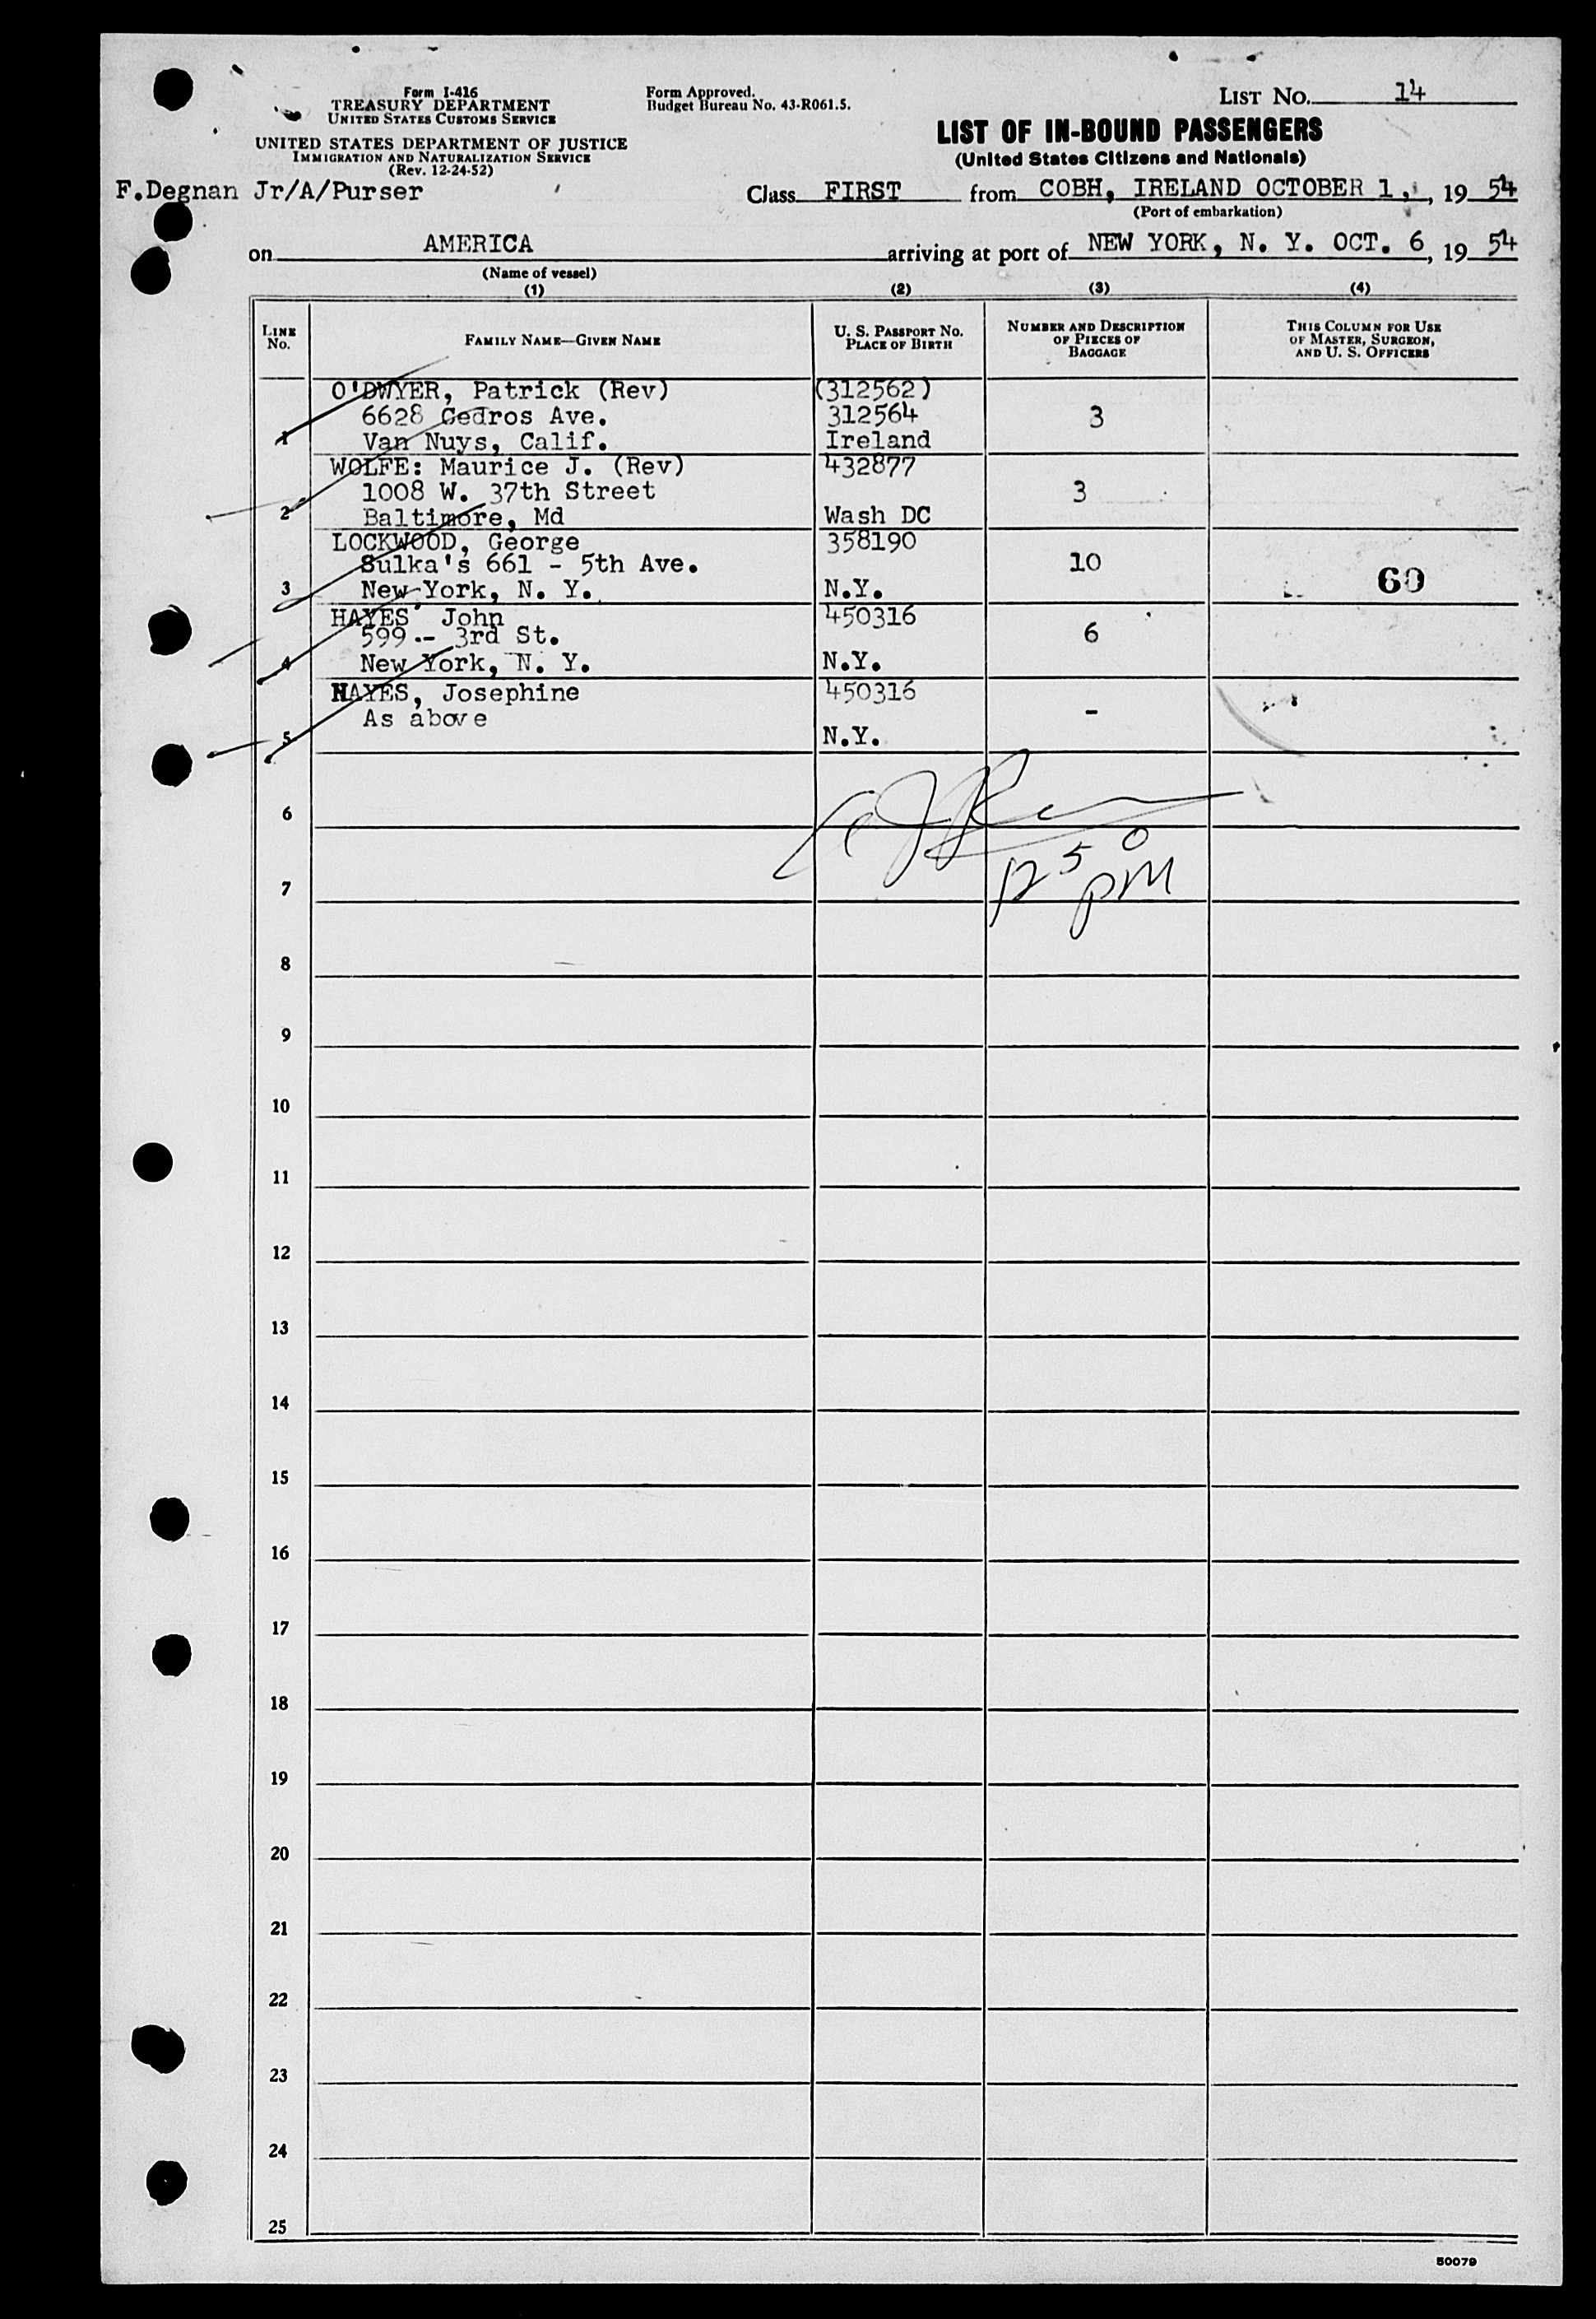 Form I-416
TREASURY DEPARTMENT
UNITED STATES CUSTOMS SERVICE
UNITED STATES DEPARTMENT OF JUSTICE
IMMIGRATION AND NATURALIZATION SERVICE
(Rev. 12-24-52)
Form Approved.
Budget Bureau No. 43-R061.5.
LIST NO. 14
LIST OF IN-BOUND PASSENGERS
(United States Citizens and Nationals)
F.Degnan Jr/A/Purser
Class FIRST from COBH, IRELAND OCTOBER 1, , 19 54
(Port of embarkation)
on AMERICA arriving at port of NEW YORK, N. Y. OCT. 6, 19 54
(Name of vessel)
(1) (2) (3) (4)
LINE NO.
FAMILY NAME—GIVEN NAME
U. S. PASSPORT NO.
PLACE OF BIRTH
NUMBER AND DESCRIPTION
OF PIECES OF
BAGGAGE
THIS COLUMN FOR USE
OF MASTER, SURGEON,
AND U. S. OFFICERS
O'DWYER, Patrick (Rev) (312562)
6628 Cedros Ave. 312564 3
1 Van Nuys, Calif. Ireland
WOLFE: Maurice J. (Rev) 432877
1008 W. 37th Street 3
2 Baltimore, Md Wash DC
LOCKWOOD, George 358190
Sulka's 661 - 5th Ave. 10 60
3 New York, N. Y. N.Y.
HAYES' John 450316
599 - 3rd St. 6
4 New York, N. Y. N.Y.
HAYES, Josephine 450316
As above -
5 N.Y.
6
12 50
7 pm
8
9
10
11
12
13
14
15
16
17
18
19
20
21
22
23
24
25
50079